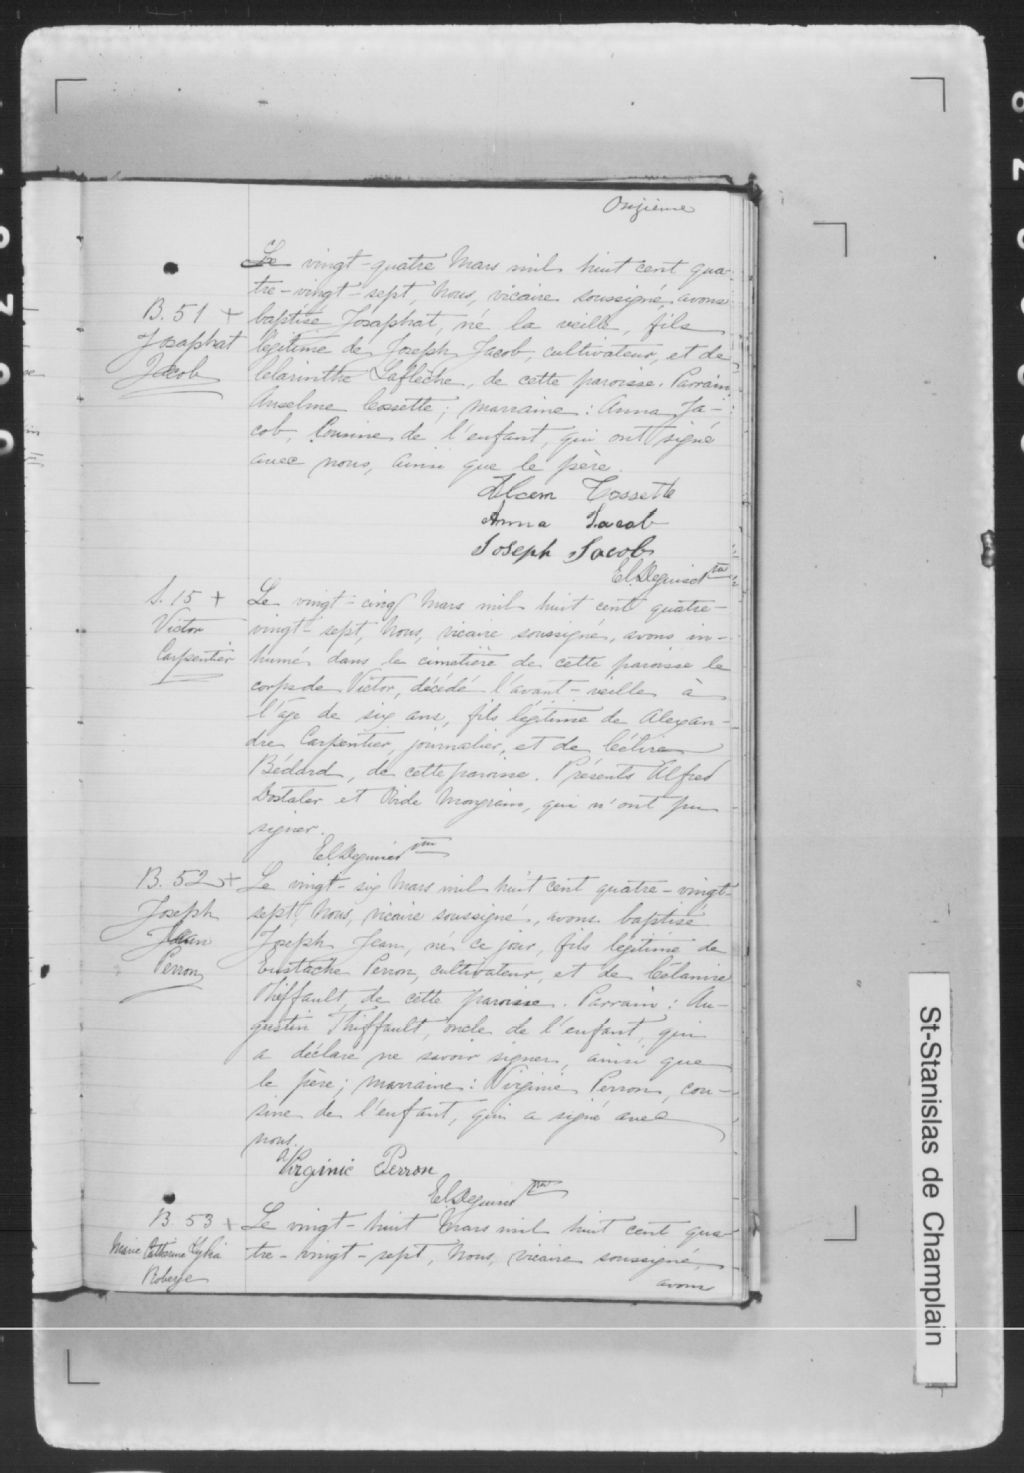 Onzième
Le vingt-quatre Mars mil huit cent qua-
tre-vingt-sept, Nous, vicaire soussigné, avons
B. 51 + baptisé Josaphat, né la veille, fils
Josaphat légitime de Joseph Jacob, cultivateur, et de
Jacob Célarinthe Laflèche, de cette paroisse. Parrain
Anselme Cossette; marraine: Anna Ja-
cob, Cousine de l'enfant, qui ont signé
avec nous, ainsi que le père.
Cossette
Anna Jacob
Joseph Jacob
S. 15 + Le vingt-cinq Mars mil huit cent quatre-
Victor vingt-sept, Nous, vicaire soussigné, avons in-
Carpentier humé dans le cimetière de cette paroisse le
corps de Victor, décédé l'avant-veille à
l'âge de six ans, fils légitime de Alexan-
dre Carpentier, journalier, et de
Bédard, de cette paroisse. Présents Alfred
Dostaler et Mongrain, qui n'ont pu
signer.
B. 52 + Le vingt-six Mars mil huit cent quatre-vingt-
Joseph sept, Nous, vicaire soussigné, avons baptisé
Jean Joseph Jean, né ce jour, fils légitime de
Perron Eustache Perron, cultivateur, et de Célanire
Thiffault, de cette paroisse. Parrain: Au-
gustin Thiffault, oncle de l'enfant, qui
a déclaré ne savoir signer, ainsi que
le père; marraine: Virginie Perron, cou-
sine de l'enfant, qui a signé avec
nous.
Virginie Perron
B. 53 + Le vingt-huit Mars mil huit cent qua-
Marie Catherine Lydia tre-vingt-sept, Nous, vicaire soussigné,
Roberge avons
St-Stanislas de Champlain